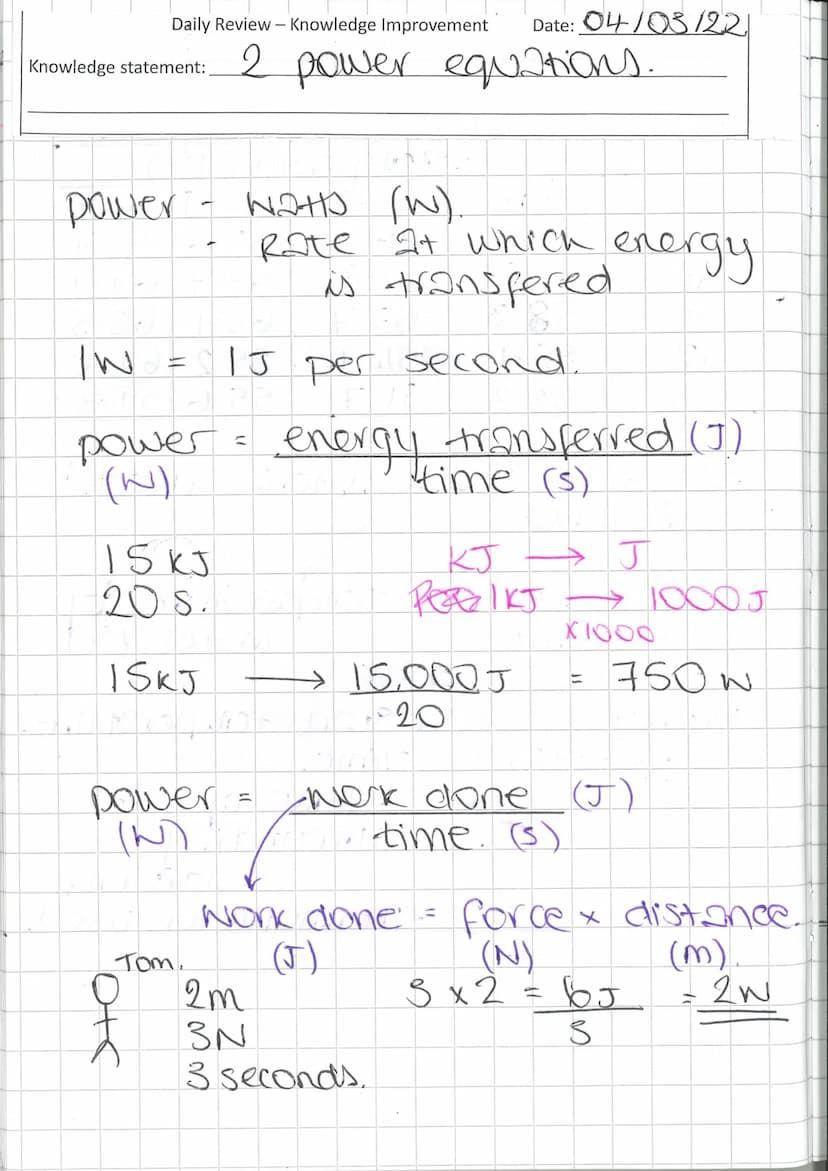 Daily Review – Knowledge Improvement Date: 04/03/22
Knowledge statement: 2 power equations.
power - watts (W).
- Rate at which energy
is transfered
1W = 1J per second.
power = energy transferred (J)
(W) time (s)
15 KJ KJ → J
20 s. 1KJ → 1000J
x1000
15KJ → 15,000J = 750W
20
power = work done (J)
(W) time. (s)
work done = force x distance.
Tom. (J) (N) (m).
2m 3 x 2 = 6J = 2W
3N 3
3 seconds.